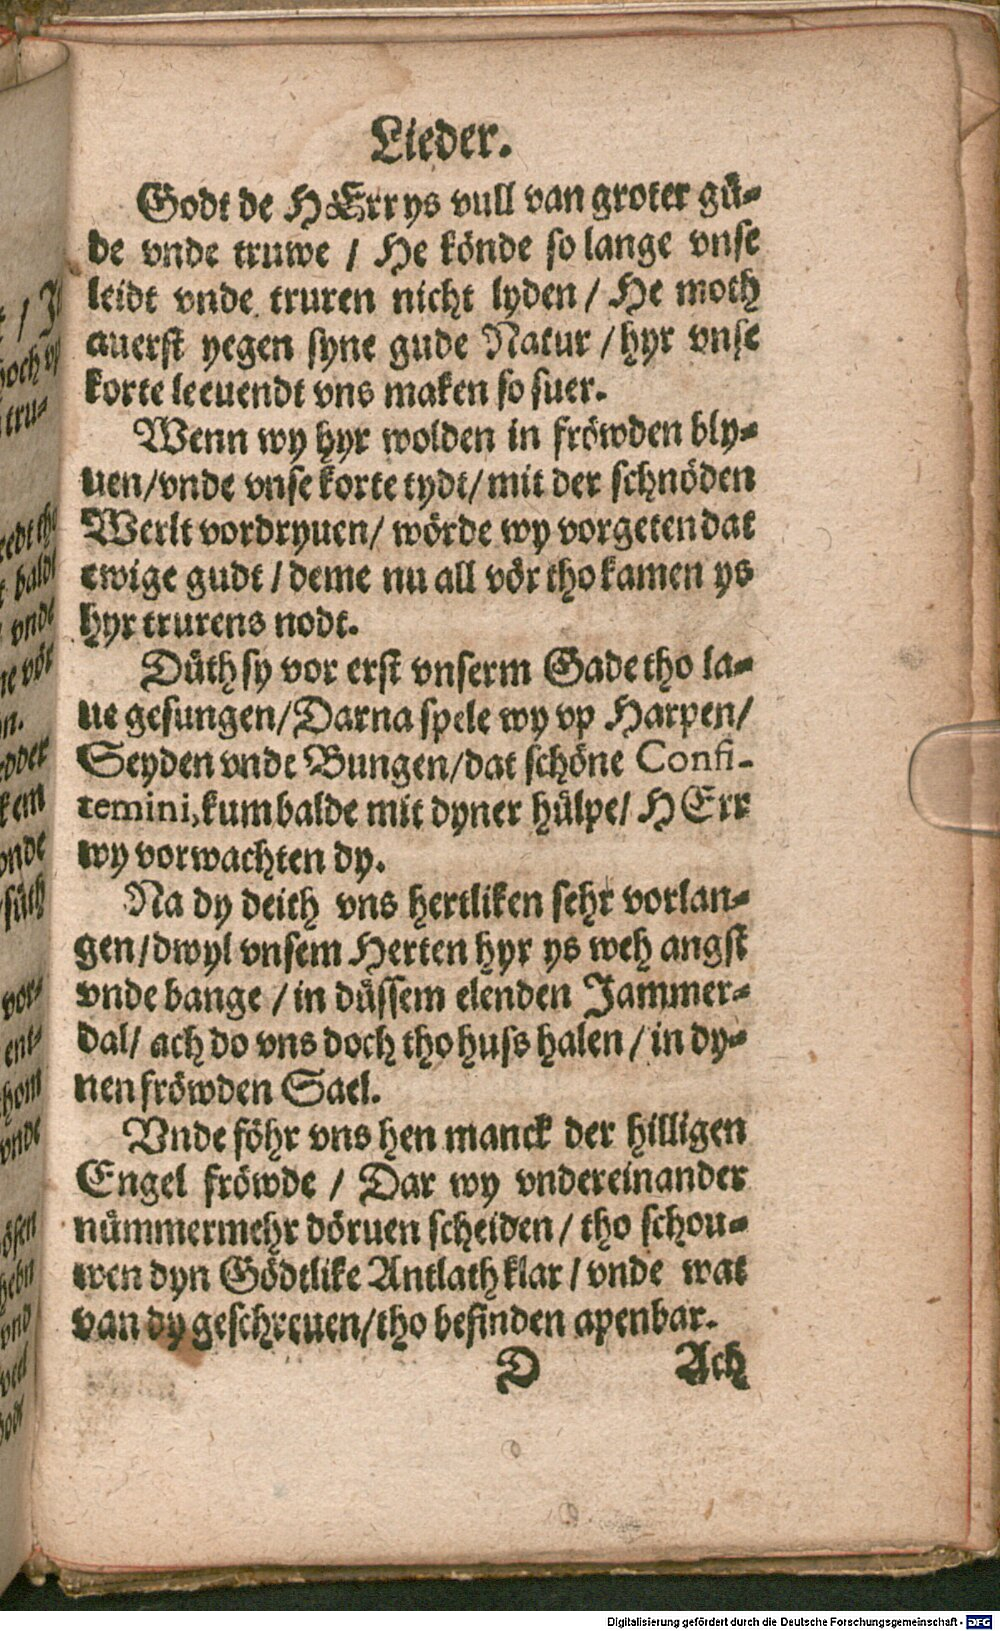 Lieder.
Godt de HErr ys vull van groter gü-
de vnde truwe / He könde so lange vnse
leidt vnde truren nicht lyden / He moth
auerst yegen syne gude Natur / hyr vnse
korte leeuendt vns maken so suer.
Wenn wy hyr wolden in fröwden bly-
uen/vnde vnse korte tydt/mit der schnöden
Werlt vordryuen/ wörde wy vorgeten dat
ewige gudt / deme nu all vör tho kamen ys
hyr trurens nodt.
Düth sy vor erst vnserm Gade tho la-
ue gesungen/Darna spele wy vp Harpen/
Seyden vnde Bungen/dat schöne Confi-
temini, kum balde mit dyner hülpe/ HErr
wy vorwachten dy.
Na dy deith vns hertliken sehr vorlan-
gen/dwyl vnsem Herten hyr ys weh angst
vnde bange / in düssem elenden Jammer-
dal/ ach do vns doch tho huss halen / in dy-
nen fröwden Sael.
Vnde föhr vns hen manck der hilligen
Engel fröwde / Dar wy vndereinander
nümmermehr döruen scheiden / tho schou-
wen dyn Gödtlike Antlath klar / vnde wat
van dy geschreuen/tho befinden apenbar.
D Ach
Digitalisierung gefördert durch die Deutsche Forschungsgemeinschaft - DFG